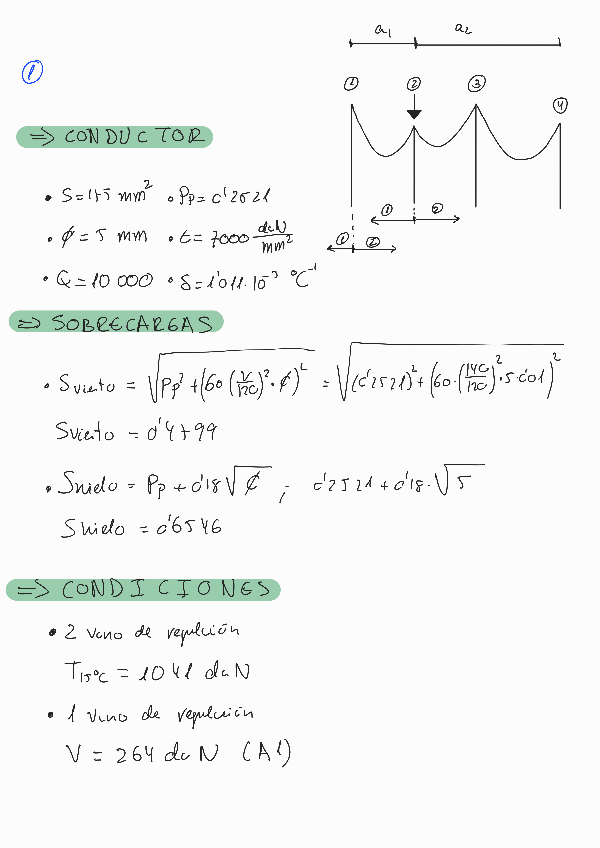 a₁ a₂
①
① ② ③ ④
⇒ CONDUCTOR
• S = 175 mm² • Pp = 0'2521
• ϕ = 5 mm • E = 7000 daN/mm²
• Q = 10 000 • δ = 1'011·10⁻³ °C⁻¹
① ②
① ②
⇒ SOBRECARGAS
• Sviento = √(Pp² + (60 (V/120)² · ϕ)²) = √((0'2521)² + (60·(140/120)²·5·0'01)²)
Sviento = 0'4799
• Shielo = Pp + 0'18 √ϕ ; 0'2521 + 0'18·√5
Shielo = 0'6546
⇒ CONDICIONES
• 2 vano de regulción
T15°C = 1041 daN
• 1 vano de regulción
V = 264 daN (A1)